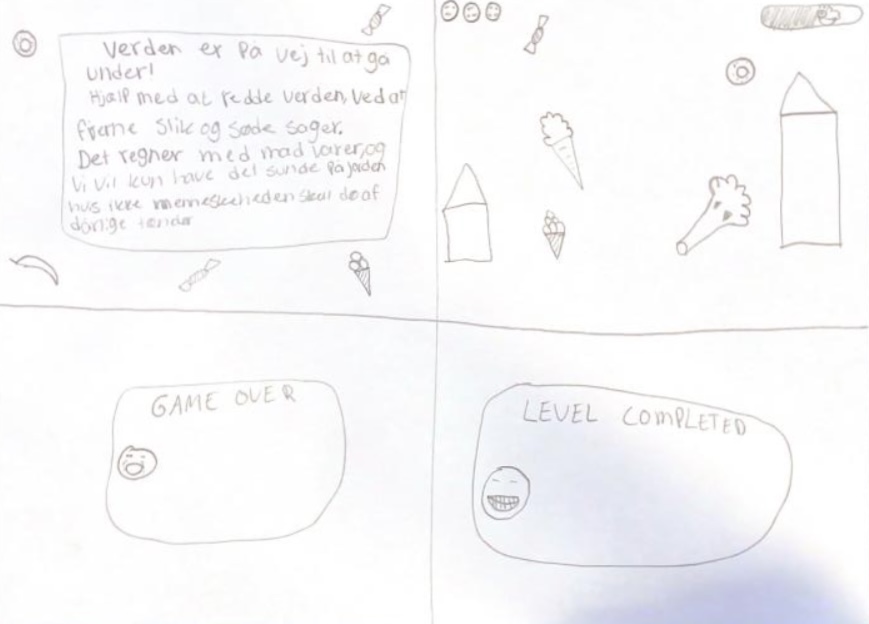 Verden er på vej til at gå
under!
Hjælp med at redde verden, ved at
fjerne slik og søde sager.
Det regner med mad varer, og
vi vil kun have det sunde på jorden
hvis ikke menneskeheden skal dø af
dårlige tænder
GAME OVER
LEVEL COMPLETED